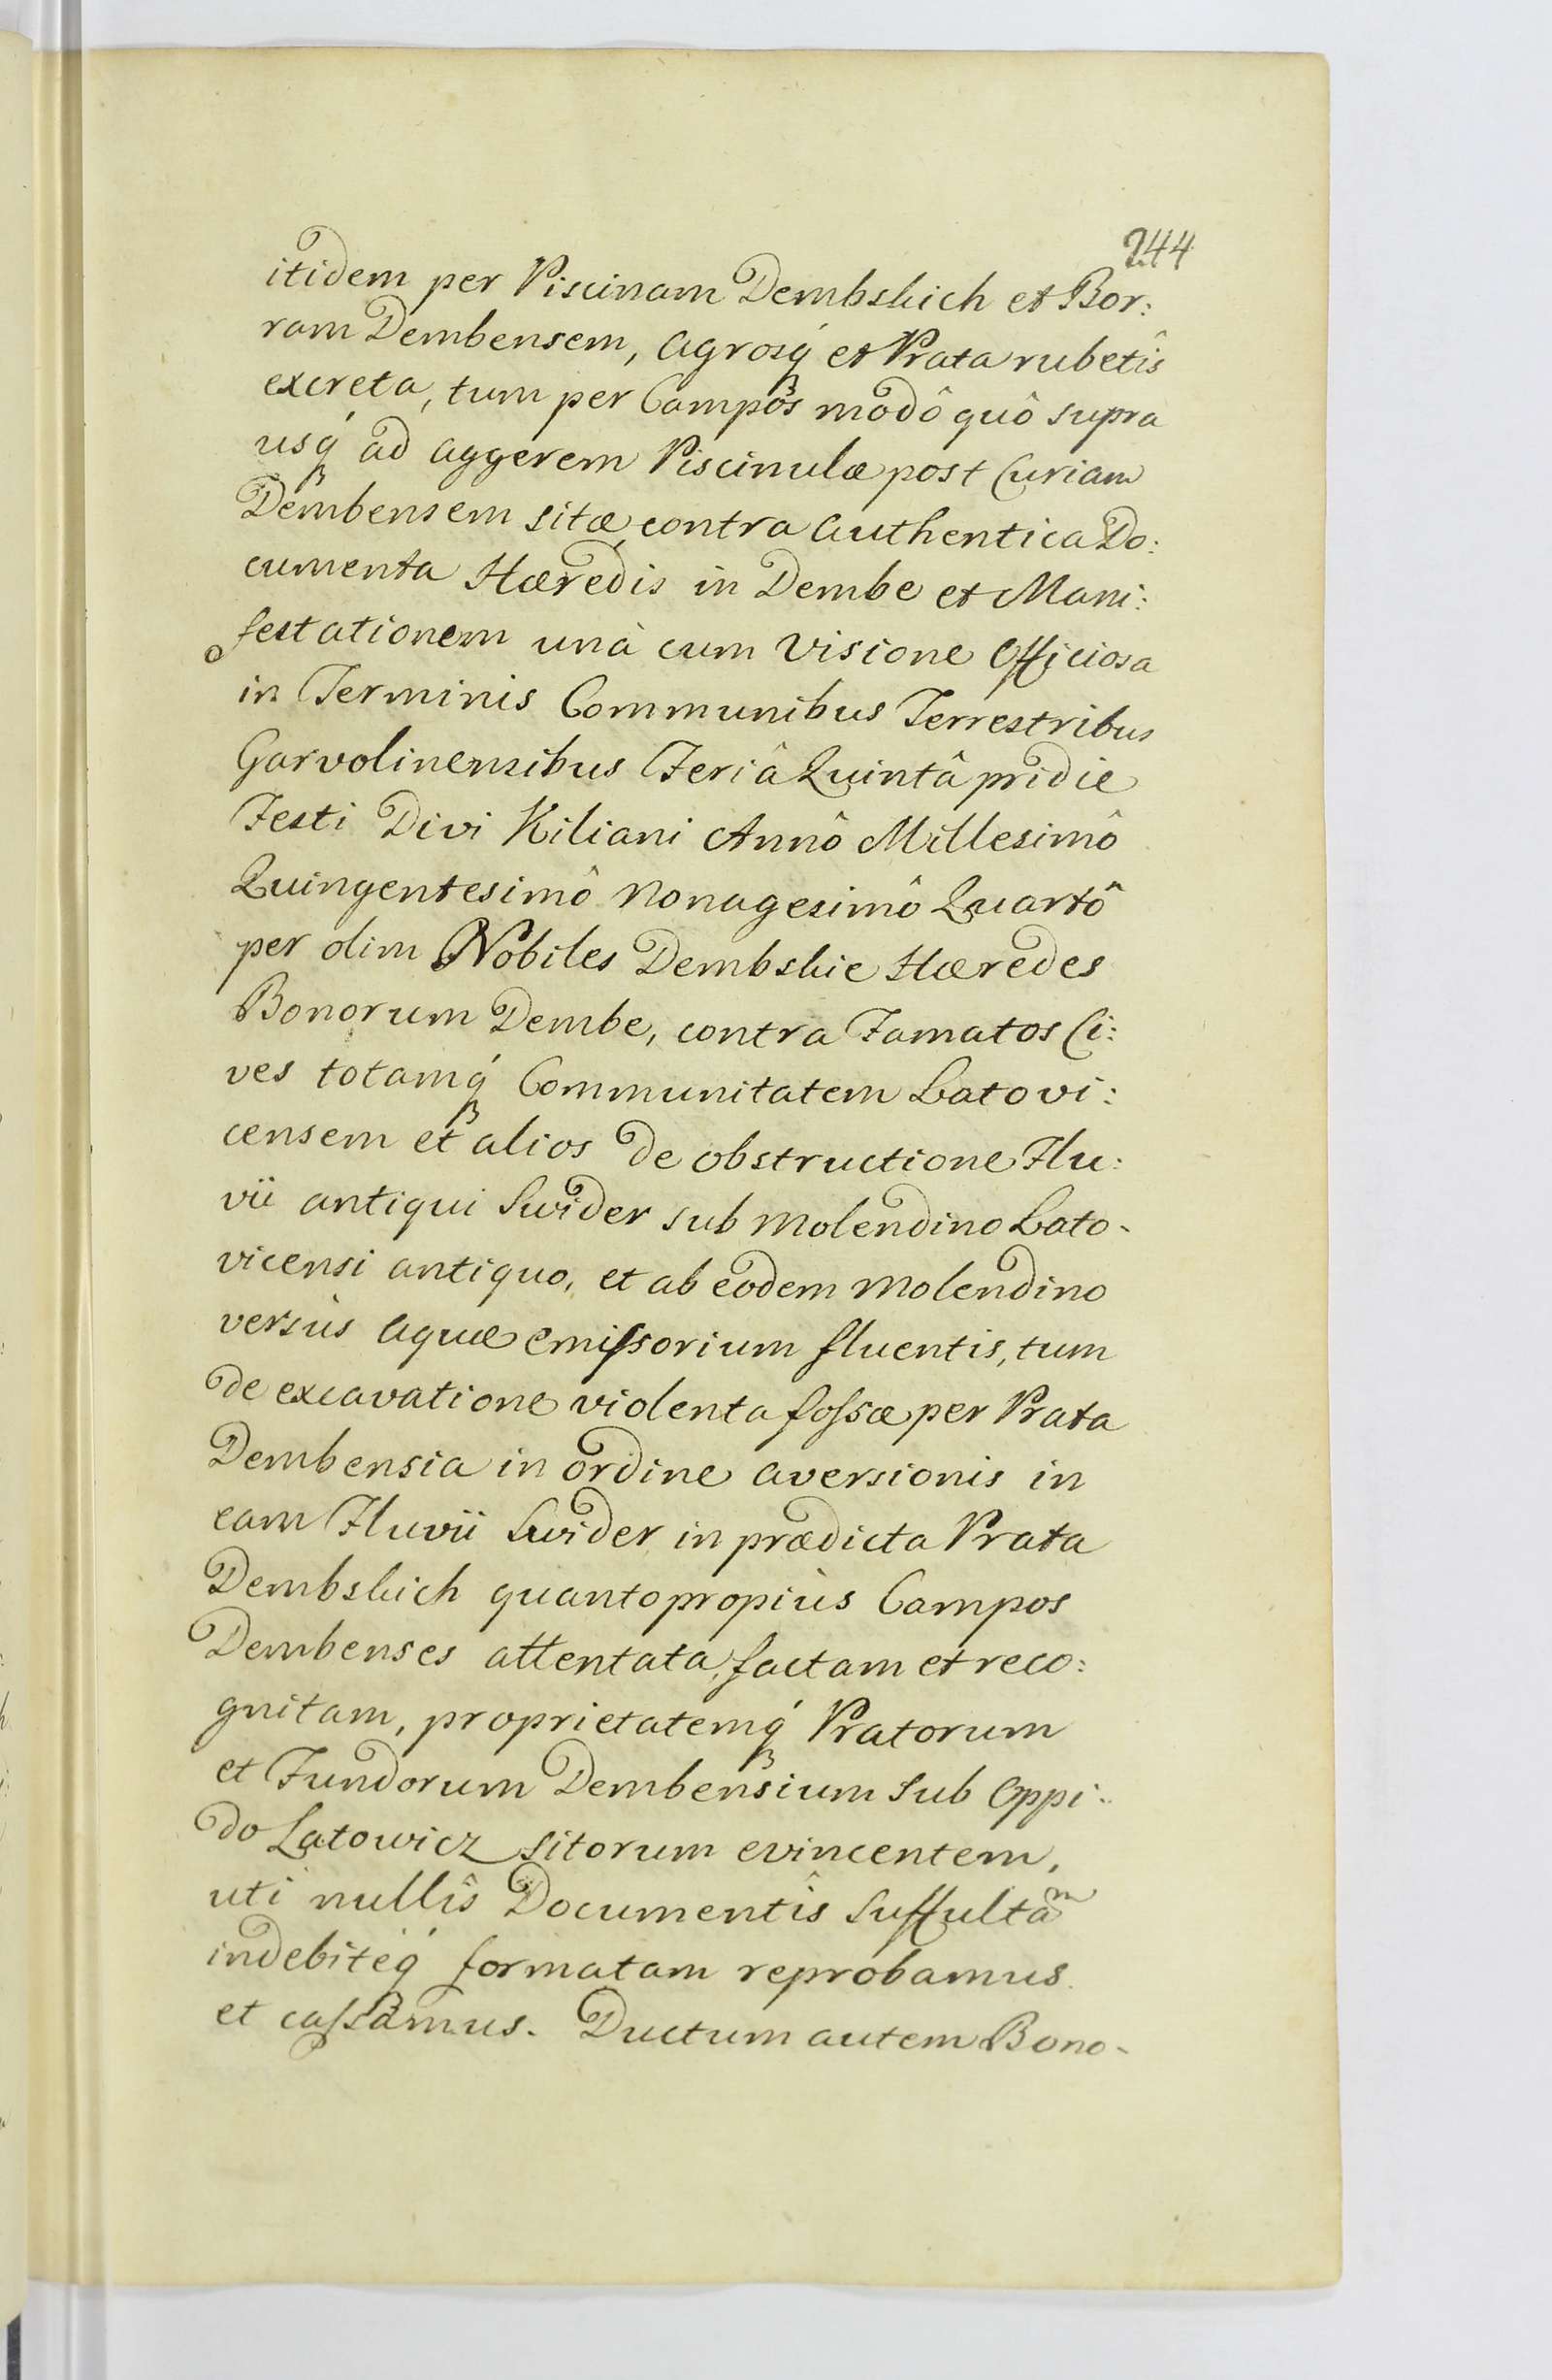 244
itidem per Piscinam Dembskich et Bor:
ram Dembensem, Agrosq́ et Prata rubetîs
excreta, tum per Campos modô quô supra
usq́ ad aggerem Piscinulæ post Curiam
Dembensem sitæ, contra authentica Do:
cumenta Hæredis in Dembe et Mani:
festationem unà cum Visione Officiosa
in Terminis Communibus Terrestribus
Garvolinensibus Feriâ Quintâ pridie
Festi Divi Kiliani Annô Millesimô
Quingentesimô Nonagesimô Quartô
per olim Nobiles Dembskie Hæredes
Bonorum Dembe, contra Famatos Ci:
ves totamq́ Communitatem Latovi:
censem et alios de obstructione Flu:
vii antiqui Swider sub Molendino Lato-
vicensi antiquo, et ab eodem Molendino
versùs aquæ emissorium fluentis, tum
de excavatione violenta fossæ per Prata
Dembensia in ordine aversionis in
eam Fluvii Swider in prædicta Prata
Dembskich quanto propiùs Campos
Dembenses attentata, factam et reco:
gnitam, proprietatemq́ Pratorum
et Fundorum Dembensium sub Oppi:
do Latowicz sitorum evincentem,
uti nullîs Documentîs suffultam
indebitéq́ formatam reprobamus
et cassamus. Ductum autem Bono-